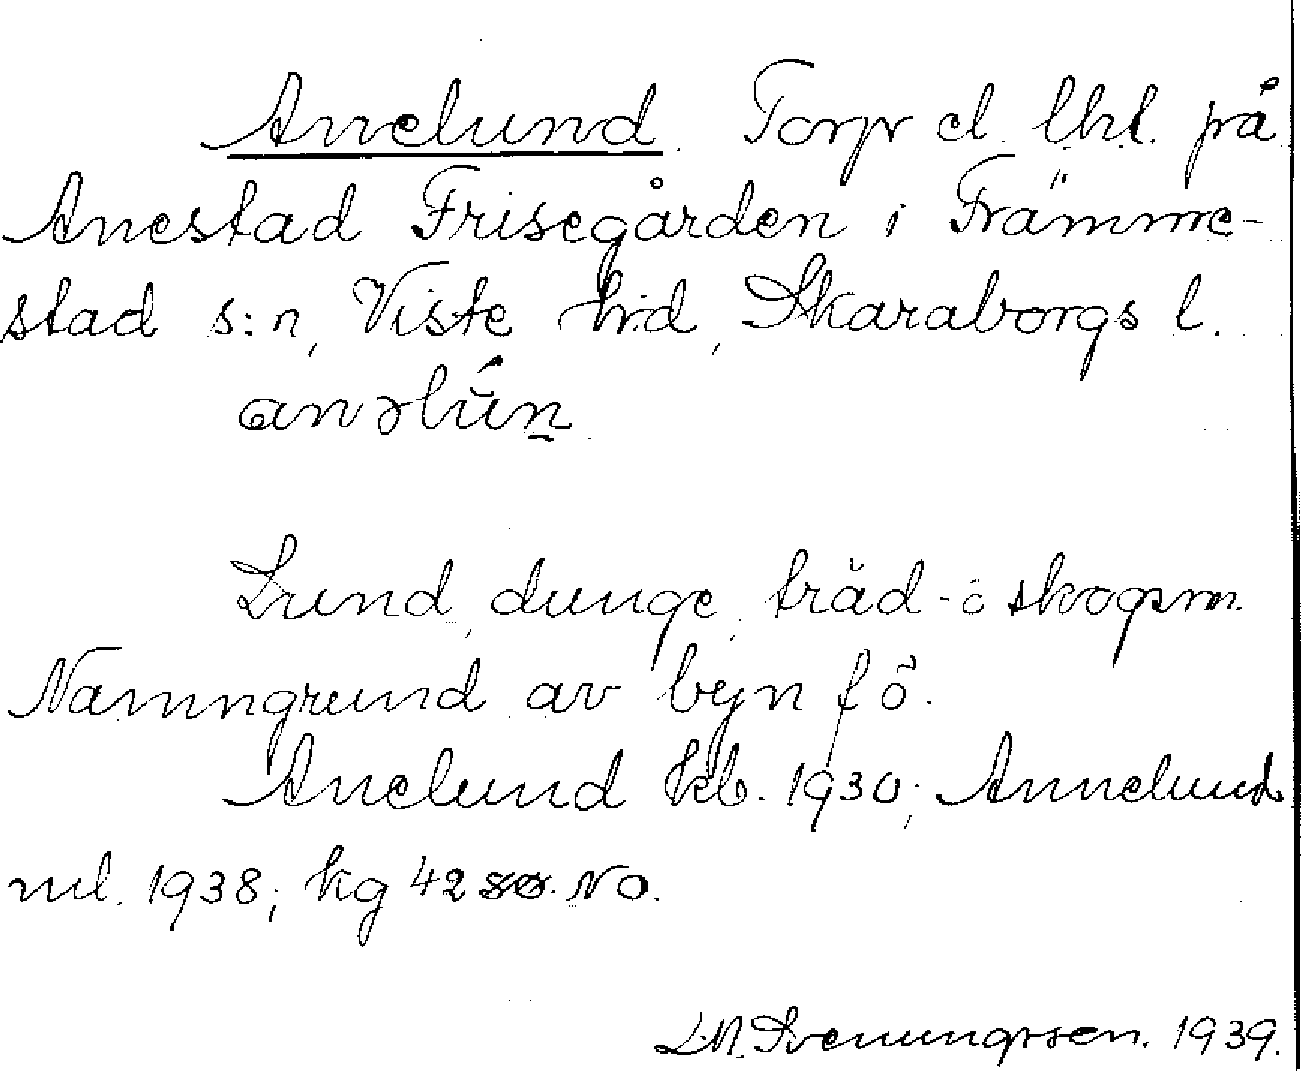 Anelund. Torp el. lht. på
Anestad Frisegården i Främme-
stad s:n, Viste hrd, Skaraborgs l.
anəlún̠
Lund, dunge, träd- o skogsm.
Namngrund av byn f ö.
Anelund kb. 1930; Annelund
ml. 1938; kg 42 so. NO.
L.N. Svenungsson. 1939.